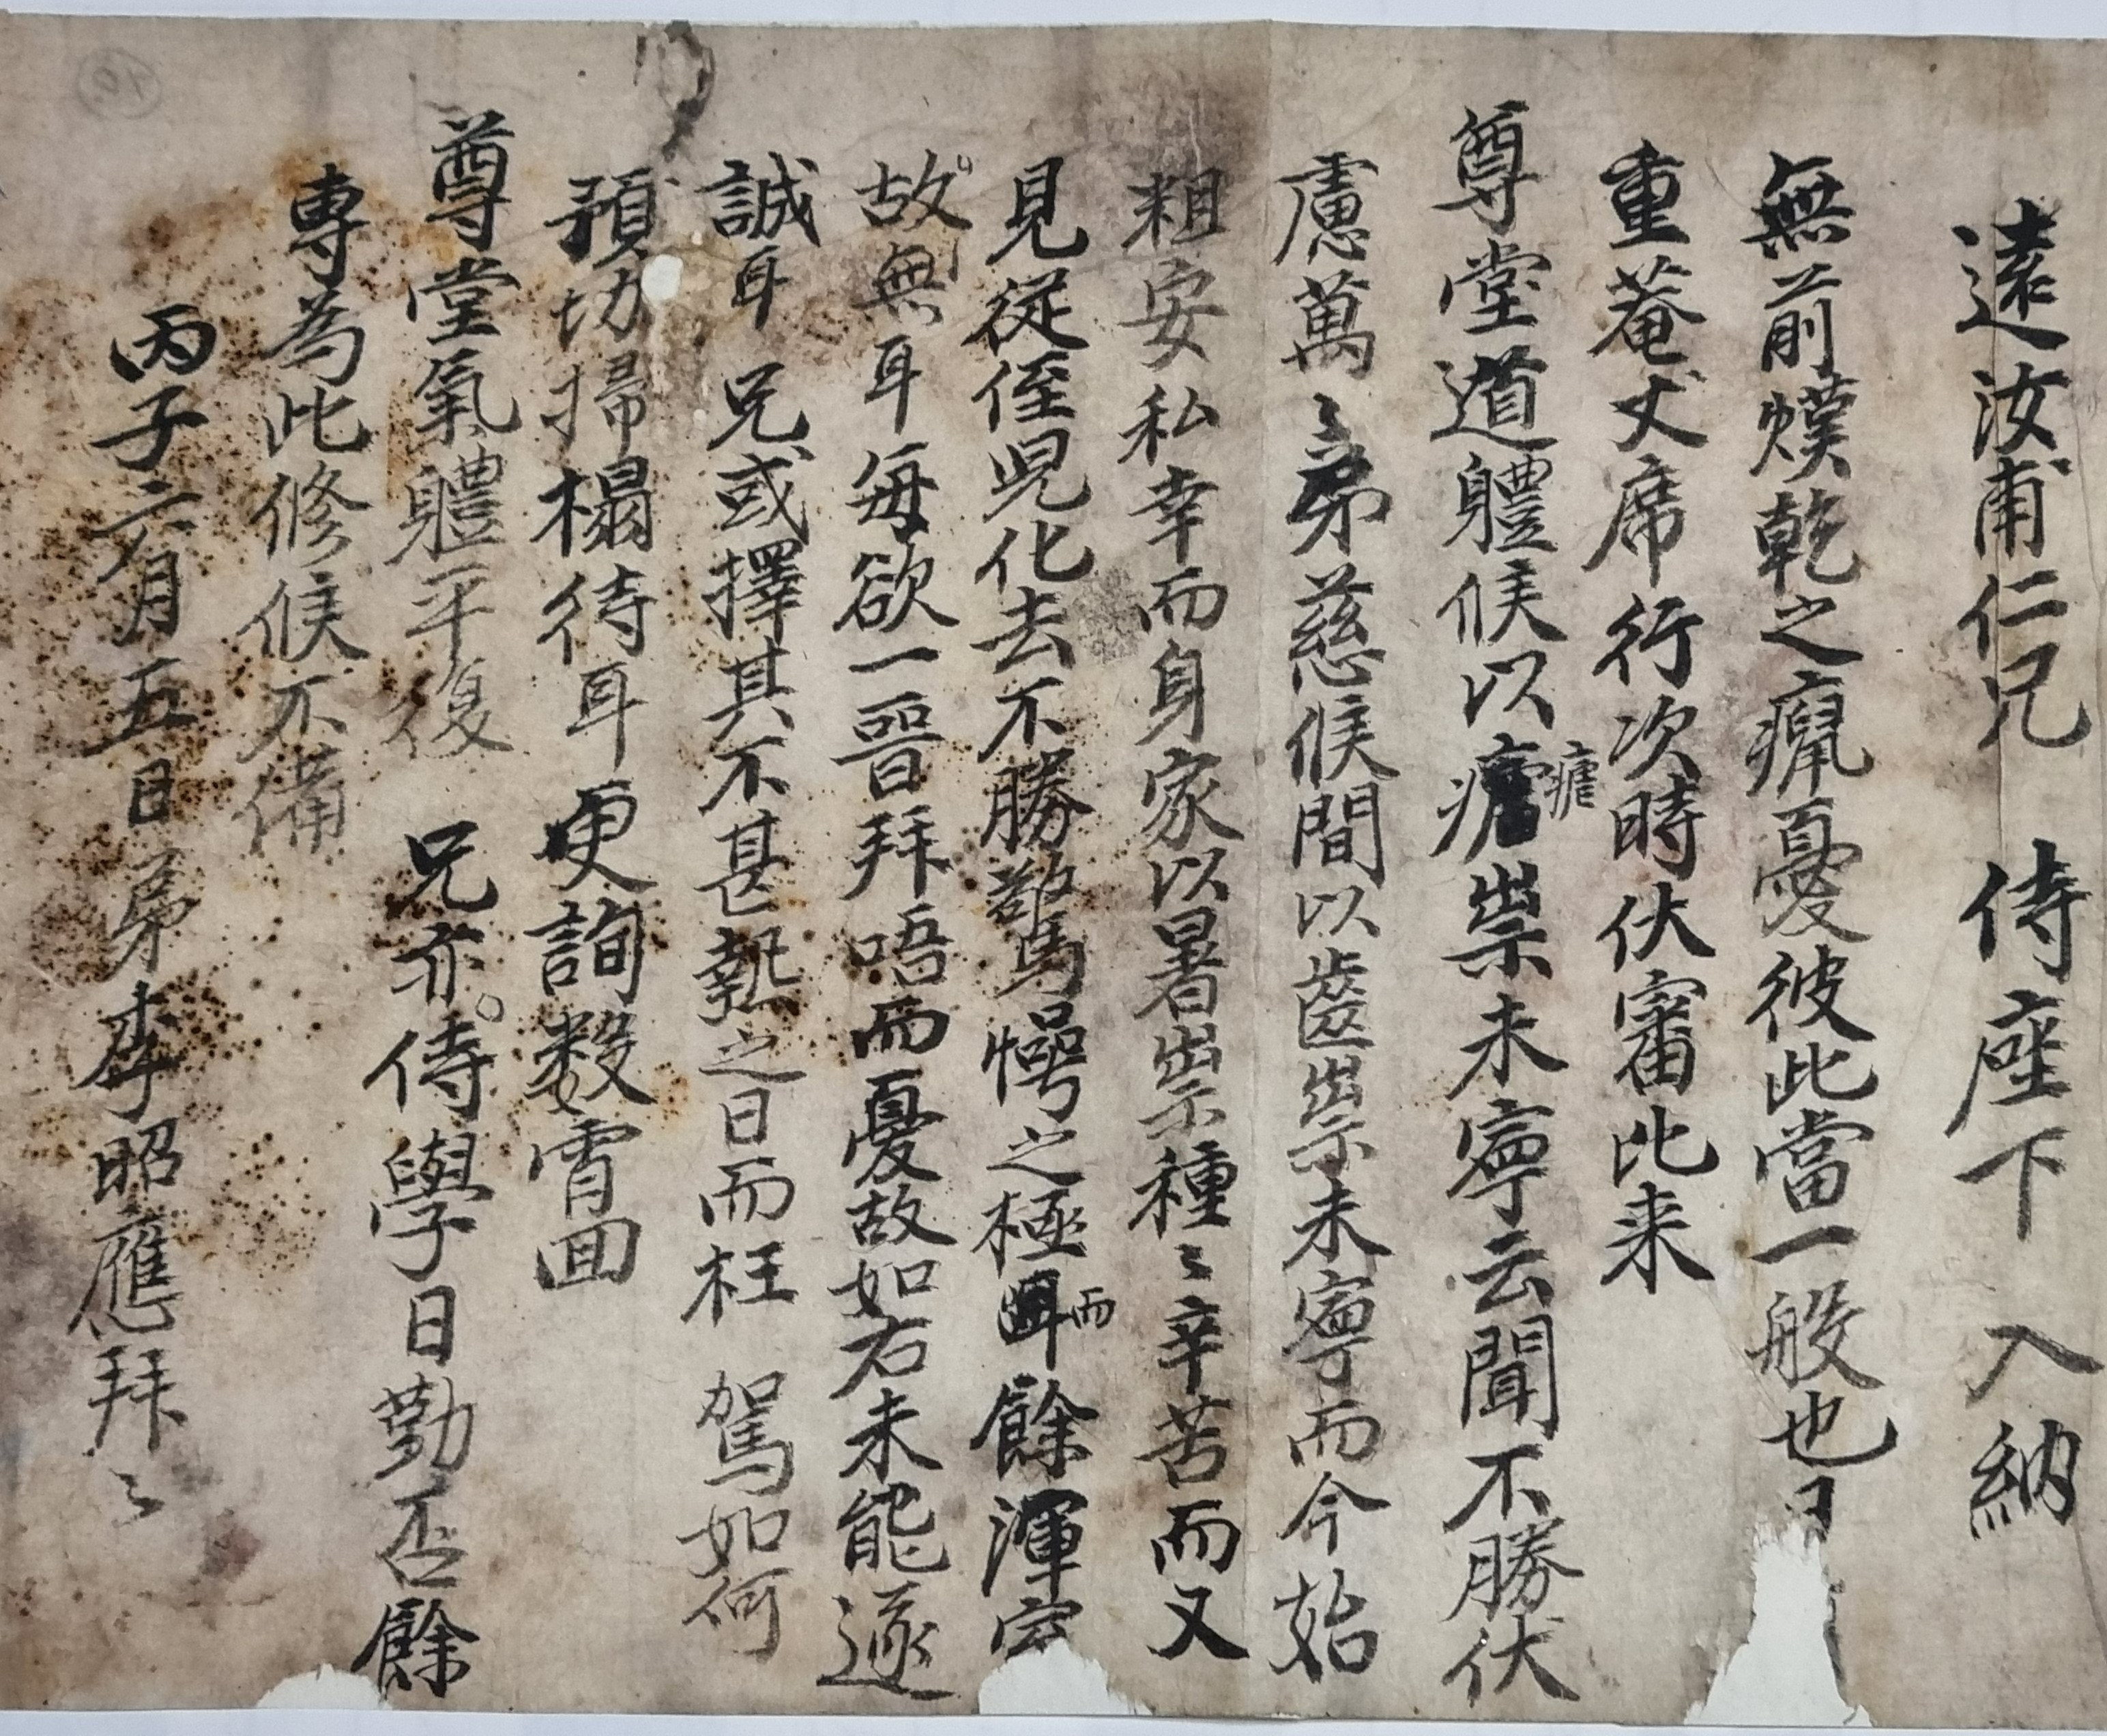 遠汝甫仁兄 侍座下 入納
無前熯乾之癏憂彼此當一般也日
重菴丈席行次時伏審比来
尊堂道軆候以瘧祟未寧云聞不勝伏
慮萬〻弟慈候間以齒祟未寧而今始
粗安私幸而身家以暑祟種〻辛苦而又
見從侄児化去不勝驚愕之極而餘渾
故無耳每欲一晉拜唔而憂故如右未能遂
誠耳 兄或擇其不甚熱之日而枉 駕如何
預切掃榻待耳更詢数宵回
尊堂氣軆平復 兄亦侍學日勤否餘
專為此修候不備
丙子六月五日弟李昭應拜〻